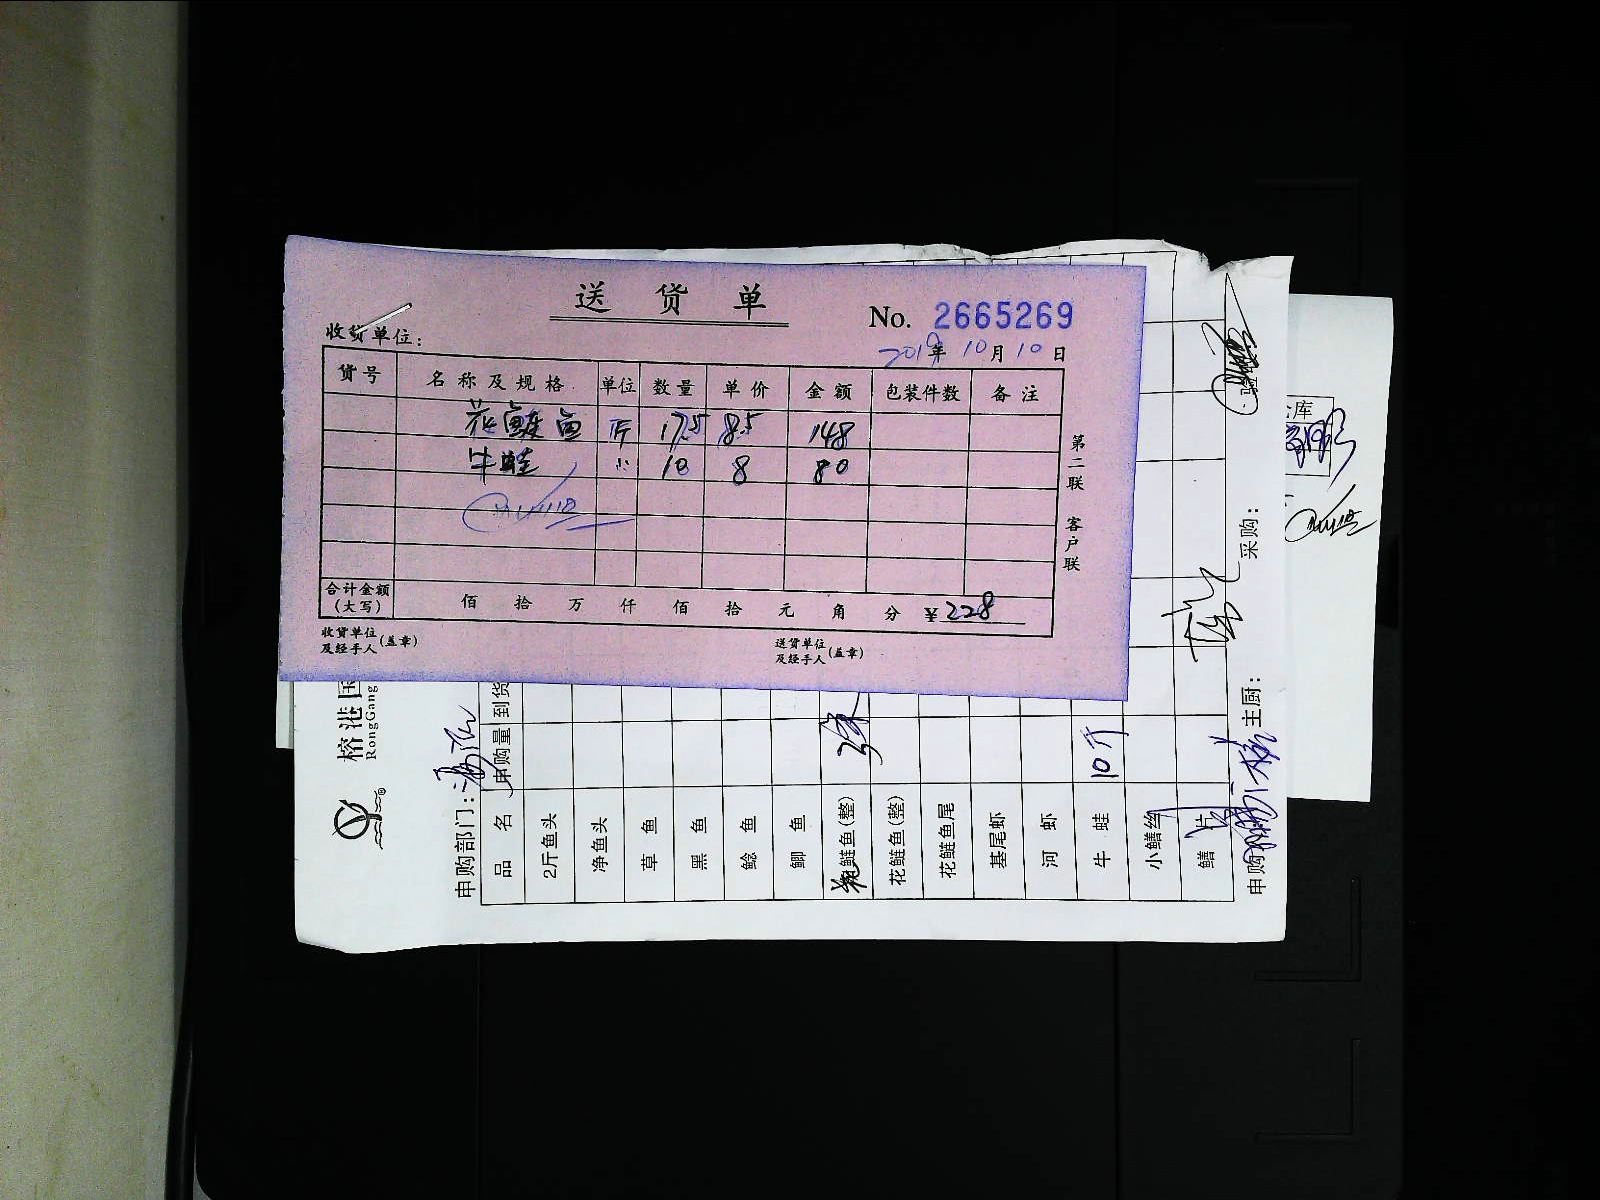 送 货 单
No. 2665269
收货单位：
2019年 10月 10日
货号 名称及规格 单位 数量 单价 金额 包装件数 备注
花鲢鱼 斤 17.5 8.5 148
牛蛙 〃 10 8 80
合计金额(大写) 佰 拾 万 仟 佰 拾 元 角 分 ¥228
收货单位及经手人(盖章) 送货单位及经手人(盖章)
第二联 客户联
榕港国
RongGang
申购部门：
品名 申购量 到货
2斤鱼头
净鱼头
草鱼
黑鱼
鲶鱼
鲫鱼
鲢鱼(整)
花鲢鱼(整)
花鲢鱼尾
基尾虾
河虾
牛蛙 10斤
小鳝丝
鳝片
申购 主厨： 采购：
库